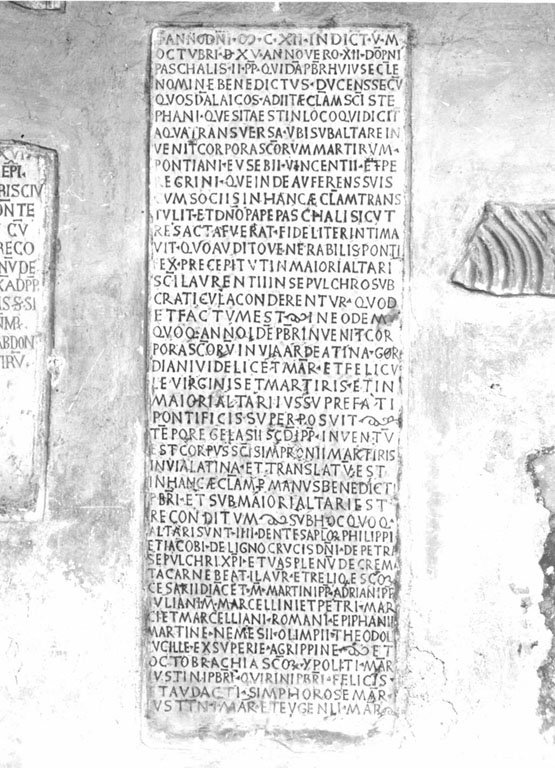 XVI
EPI
RIS CIV
ONTE
CV
RECO
NV DE
KADPP
IS S SI
NMR
ABDON
TIRV
ANNO DNI ∞ C XII INDICT V M
OCTVBRI D XV ANNO VERO XII DOPNI
PASCHALIS II PP QVIDA PBR HVIVS ECLE
NOMINE BENEDICTVS DVCENS SECV
QVOSDA LAICOS ADIIT ÆCLAM SCI STE
PHANI QVE SITA EST IN LOCO QVI DICIT
AQVA TRANSVERSA VBI SVB ALTARE IN
VENIT CORPORA SCORVM MARTIRVM
PONTIANI EVSEBII VINCENTII ET PE
REGRINI QVE INDE AVFERENS SVIS
CVM SOCIIS IN HANC ÆCLAM TRANS
TVLIT ET DNO PAPE PASCHALI SICVT
RES ACTA FVERAT FIDELITER INTIMA
VIT QVO AVDITO VENERABILIS PONTI
FEX PRECEPIT VT IN MAIORI ALTARI
SCI LAVRENTII IN SEPVLCHRO SVB
CRATICVLA CONDERENTVR QVOD
ET FACTVM EST IN EODEM
QVOQ ANNO IDE PBR INVENIT COR
PORA SCORV IN VIA ARDEATINA GOR
DIANI VIDELICET MAR ET FELICV
LE VIRGINIS ET MARTIRIS ET IN
MAIORI ALTARI IVSSV PREFATI
PONTIFICIS SVPERPOSVIT
TEPORE GELASII SCDI PP INVENTV
EST CORPVS SCI SIMPRONII MARTIRIS
IN VIA LATINA ET TRANSLATV EST
IN HANC ÆCLAM P MANVS BENEDICTI
PBRI ET SVB MAIORI ALTARI EST
RECONDITVM SVB HOC QVOQ
ALTARI SVNT IIII DENTES APLOR PHILIPPI
ET IACOBI DE LIGNO CRVCIS DNI DE PETRA
SEPVLCHRI XPI ET VAS PLENV DE CREM
TA CARNE BEATI LAVR ET RELIQE SCOR
CESARII DIAC ET M MARTINI PP ADRIANI PP
IVLIANI M MARCELLINI ET PETRI MAR
CI ET MARCELLIANI ROMANI EPIPHANII
MARTINE NEMESII OLIMPII THEODOLI
LVCILLE EXSVPERIE AGRIPPINE ET
OCTO BRACHIA SCOR YPOLITI MAR
IVSTINI PBRI QVIRINI PBRI FELICIS
TAVDACTI SIMPHOROSE MAR
IVSTIN I MAR ET EVGENII MAR